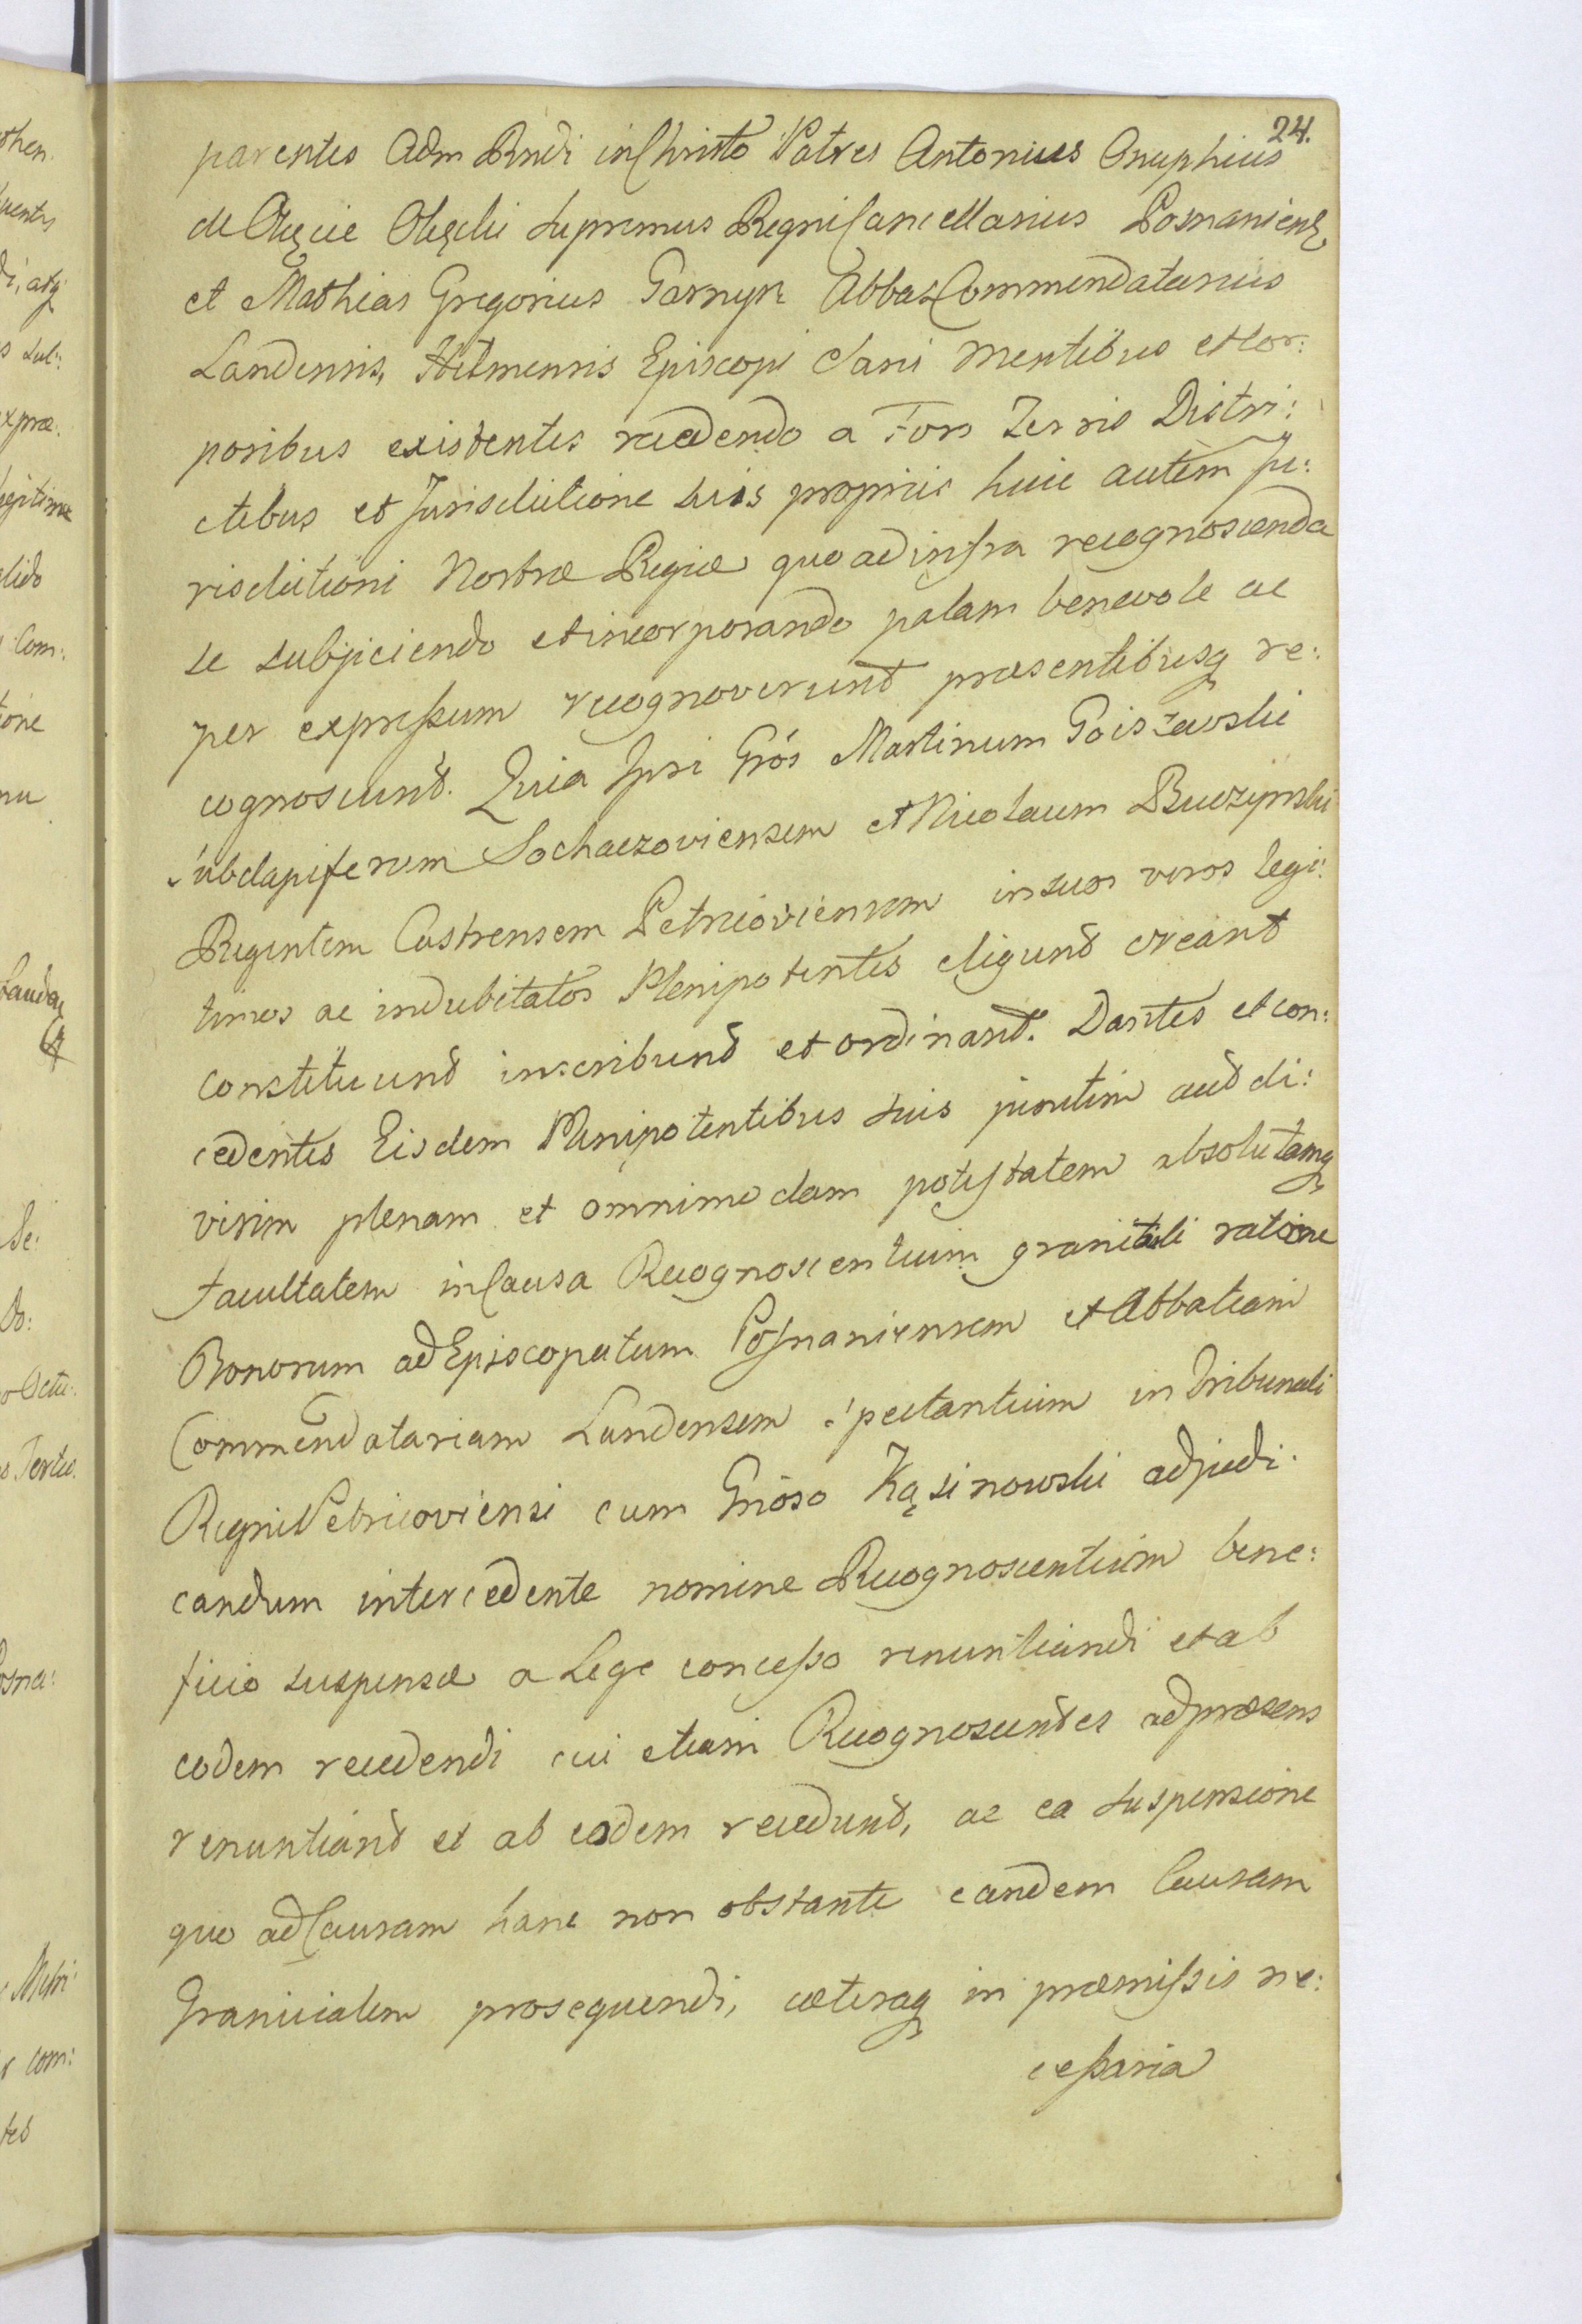 24.
parentes Adm Rndi in Christo Patres Antonius Onuphius
de Okęcie Okęcki Supremus Regni Cancellarius Posnaniens,
et Mathias Gregorius Garnysz Abbas Commendatarius
Landensis, Helmensis Episcopi Sani Mentibus et Cor:
poribus existentes recedendo a Foro Terris Distri:
ctibus et Jurisdictione suis propriis huic autem Ju:
risdictioni Nostræ Regiæ quo ad infra recognoscenda
se subjiciendo et incorporando palam benevole ac
per expressum recognoverunt præsentibusq re:
cognoscunt. Quia Ipsi Grōs Martinum Goiszewski
Subdapiferum Sochaczoviensem et Nicolaum Buczÿnski
Regentem Castrensem Petricoviensem in suos veros legi:
timos ac indubitatos Plenipotentes eligunt creant
constituunt inscribunt et ordinant. Dantes et con:
cedentes Eisdem Plenipotentibus suis junctim aut di:
visim plenam et omnimodam potestatem absolutamq
facultatem in Causa Recognoscentium granitiali ratione
Bonorum ad Episcopatum Posnaniensem et Abbatiam
Commendatariam Landensem spectantium in Tribunali
Regni Petricoviensi cum Gnōso Kąsinowski adjudi:
candum intercedente nomine Recognoscentium bene:
ficio suspensæ a Lege concesso renuntiandi et ab
eodem recedendi cui etiam Recognoscentes ad præsens
renuntiant et ab eodem recedunt, ac ea suspensione
quo ad Causam hanc non obstante eandem Causam
Granicialem prosequendi, cæteraq in præmissis ne:
cessaria